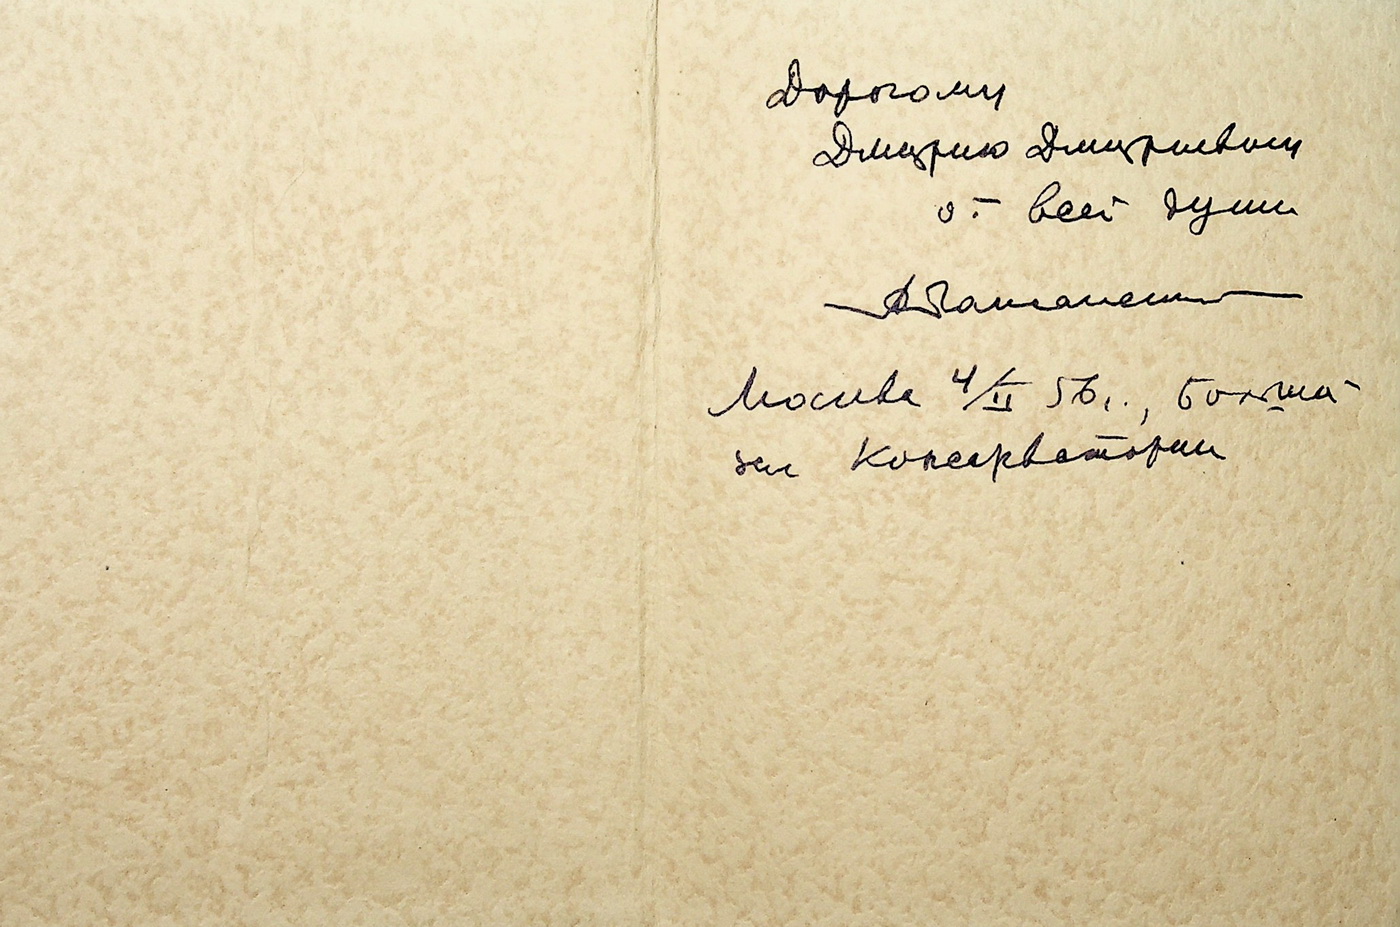 Дорогому
Дмитрию Дмитриевичу
от всей души
Москва 4/II 56 г., Большой
зал Консерватории